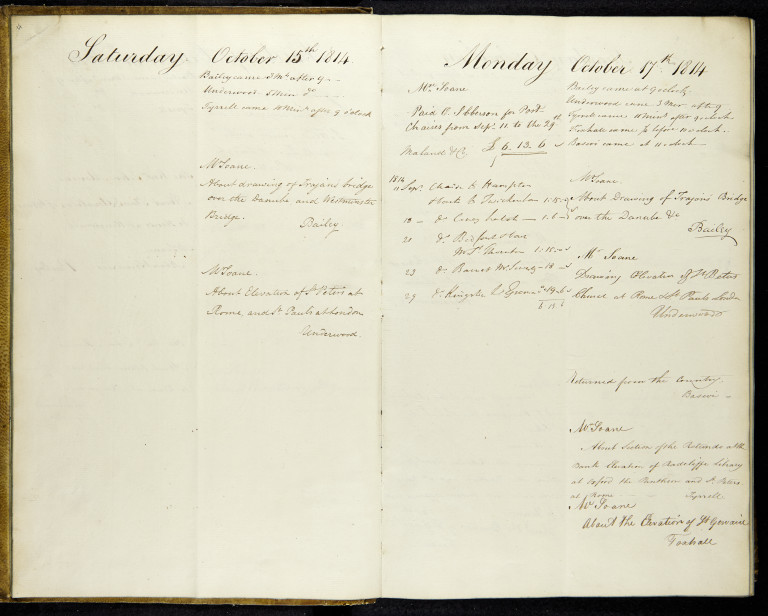 Saturday October 15th 1814
Bailey came 5 Mts after 9
Underwood 5 Min Do
Tyrrell came 11 Mints after 9 o'clock
Mr Soane.
About drawing of Trajans bridge
over the Danube and Westminster
Bridge.
Bailey
Mr Soane.
About Elevation of St Peters at
Rome and St Pauls at London
Underwood.
Monday October 17th 1814
Mr Soane
Paid O. Ibberson for Post
Chaises from Sepr. 11 to the 29th
£ 6. 13. 6
1814
11 Sepr. Chaise to Hampton
to Twickenham 1.15.
20 Do Bedford
23 Do Barnet
29 Do Kingston
Bailey came at 9 o'clock
Underwood came 3 Min after 9
Tyrrell came 11 Mint after 9 o'clock
Foxhall came before 11 o'clock
Basevi came at 11 o'clock
Mr Soane
About Drawing of Trajan's Bridge
over the Danube &c
Bailey
Mr Soane
Drawing Elevation of St Peters
Church at Rome & St Pauls London
Underwood
Returned from the Country.
Basevi
Mr Soane
About Section of the Rotunda at the
Bank Elevation of Radcliffe Library
at Oxford the Pantheon and St Peters
at Rome
Tyrrell
Mr Soane
About the Elevation of St Gervais
Foxhall